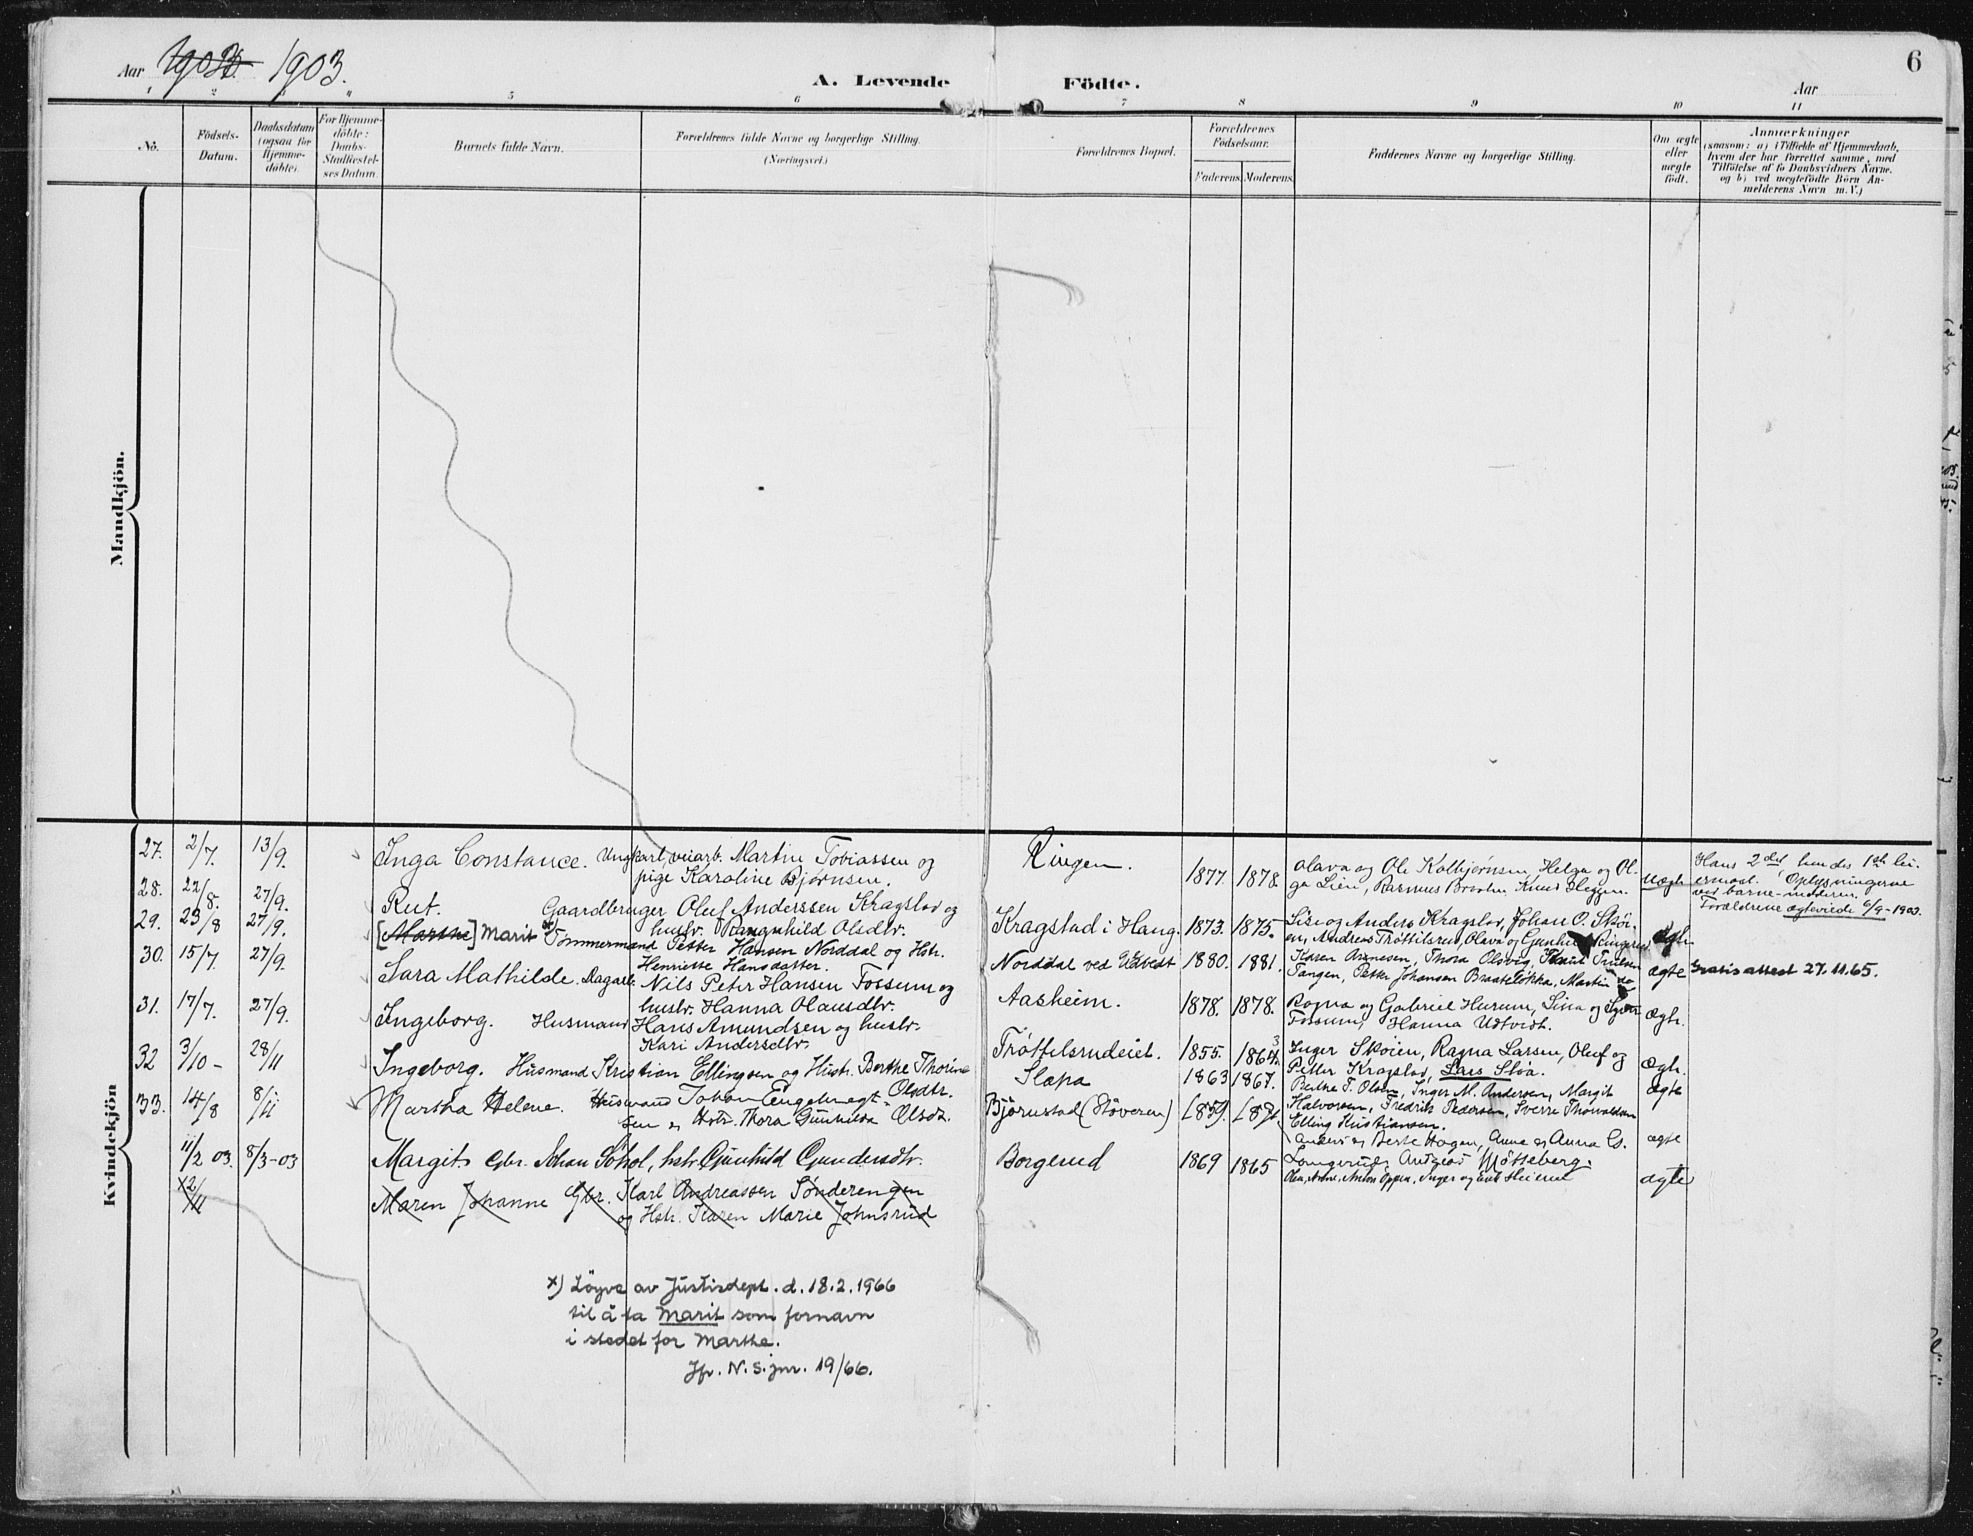 6
Aar 1902 1903.
A. Levende Födte.
Aar
1 2 3 4 5 6 7 8 9 10 11
No.
Födsels-
Datum.
Daabsdatum
(ogsaa for
Hjemme-
döbte).
For Hjemme-
döbte:
Daabs-
Stadfæstel-
ses Datum.
Barnets fulde Navn.
Forældrenes fulde Navne og borgerlige Stilling.
(Næringsvei.)
Forældrenes Bopæl.
Forældrenes
Födselsaar.
Faderens. Moderens.
Faddernes Navne og borgerlige Stilling.
Om ægte
eller
uægte
födt.
Anmærkninger
(saasom: a) i Tilfælde af Hjemmedaab,
hvem der har forrettet samme, med
Tilföielse af to Daabsvidners Navne.
og b) ved uægtefödte Börn An-
melderens Navn m. V.)
Mandkjön.
Kvindekjön
27. 2/7. 13/9. Inga Constance. Ungkarl, veiarb. Martin Tobiassen og
pige Karoline Bjørnsen.
Ringen. 1877. 1878. Olava og Ole Kolbjørnsen, Helga og Ol.
ga Lien, Rasmus Knud Uægte
Hans 2det hendes 1ste lei-
ermaal. Oplysningerne
ved barnemoderen.
Forældrene ægteviede 6/9-1903.
28. 22/8. 27/9. Rut. Gaardbruger Oluf Anderssen Kragstad og
hustr. Ragnhild Olsdtr.
Kragstad i Haug. 1873. 1875. Lise og Anders Kragstad, Johan O. Skøi-
en, Andreas Trøttelsrud, Olava og Gunhild Ringerud. Ægte.
29. 23/8 27/9. [Marthe] Marit x) Tømmermand Petter Hansen Norddal og Hstr.
Henriette Hansdatter.
Norddal ved Udvedt 1880. 1881. Karen Arnesen, Thora Olsvig, Knut Trulsen
Tangen, Petter Johansen Braateløkka, Martin do ægte Gratis attest 27.11.65.
30. 15/7. 27/9. Sara Mathilde. Dagarb. Nils Peter Hansen Fossum og
hustr. Hanna Olausdtr.
Aasheim. 1878. 1878. Ragna og Gabriel Hurum, Lina og Syver
Fossum, Hanna Udtvidt. Ægte.
31. 17/7. 27/9. Ingeborg. Husmand Hans Amundsen og hustr.
Kari Andersdtr.
Trøttelsrudeiet. 1855. 1864. Inger Skøien, Ragna Larsen, Oluf og
Petter Kragstad, Lars Sløa. Ægte.
32 3/10 - 28/11 Ingeborg. Husmand Kristian Ellingsen og Hustr. Berthe Thorine
Olsdtr.
Slæpa 1863 1867. Berthe T. Olsen, Inger M. Andersen, Margit
Halvorsen, Fredrik Pedersen, Sverre Thorvaldsen
Elling Kristiansen. ægte
33. 14/8 8/11 Martha Helene. Husmand Johan Engebregt-
sen og Hstr. Thora Gunhilda Olsdt.
Bjørnstad (Støveren) 1859. Anders og Berte Hagen, Anne og Anna G.
Langerud, Andreas Møtteberg. ægte
11/2 03. 8/3-03 Margit. Gbr. Johan Sohol, hstr. Gunhild Gundersdtr.
Borgerud 1869 1865 Olea, Anne, Anton Oppen, Inger og Heieren ægte
12/11 Maren Johanne Gbr. Karl Andreassen Sønderengen
og Hstr. Karen Marie Johnsrud
x) Løyve av Justisdept. d. 18.2.1966
til å ta Marit som fornavn
i stedet for Marthe.
Jfr. N.S. jnr. 19/66.